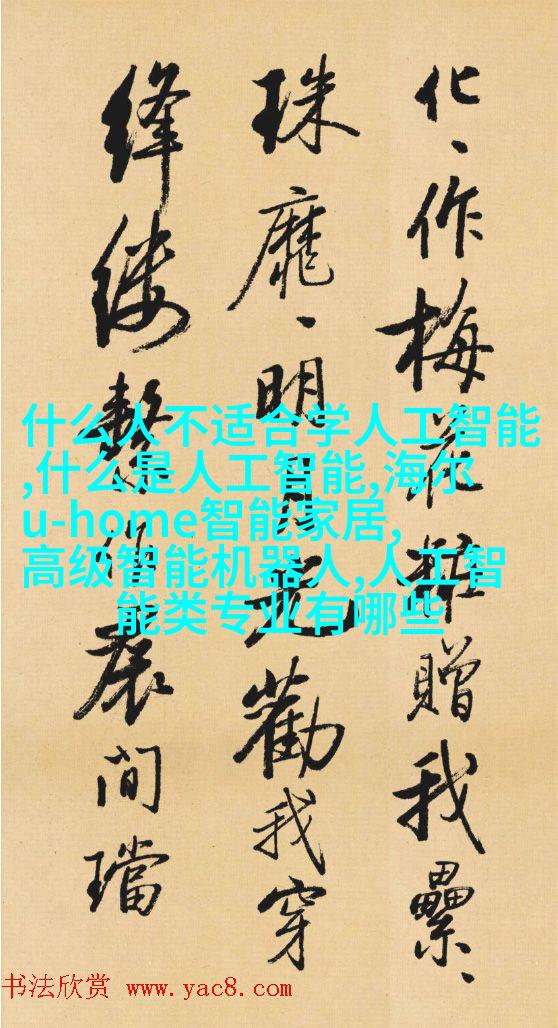 化、作梅花粧贈我纍、
珠靡、明月勸我穿
絳縷繫作間璫
什么人不适合学人工智能
,什么是人工智能,海尔
u-home智能家居,
高级智能机器人,人工智
能类专业有哪些
书法欣赏 www.yac8.com